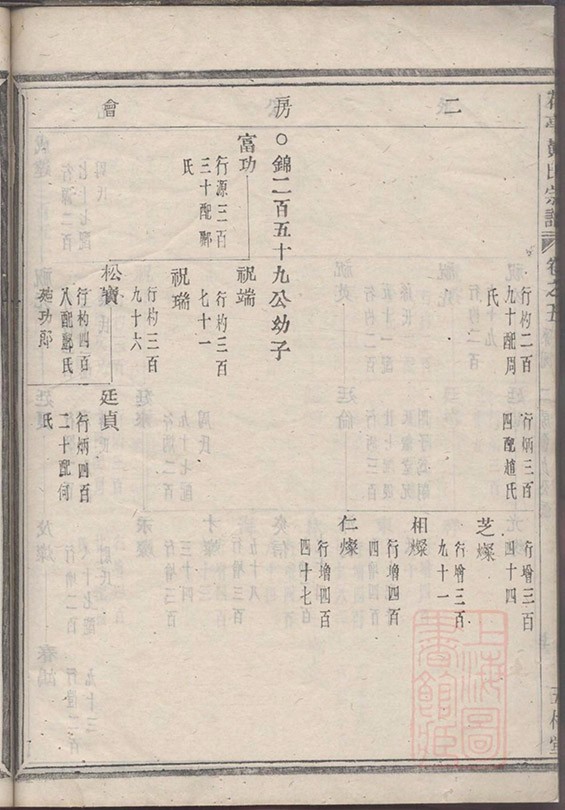 二
房
會
行杓二百
九十配周
氏
行炳三百
四配趙氏
行增三百
四十四
芝燦
行增三百
九十一
相燦
行增四百
四
仁燦
行增四百
四十七
○錦二百五十九公幼子
富功
行源三百
三十配酈
氏
祝端
行杓三百
七十一
祝瑞
行杓三百
九十六
松寶
行杓四百
八配酈氏
廷貞
行炳四百
二十配何
氏
宗譜
卷之五
上海圖
書館藏